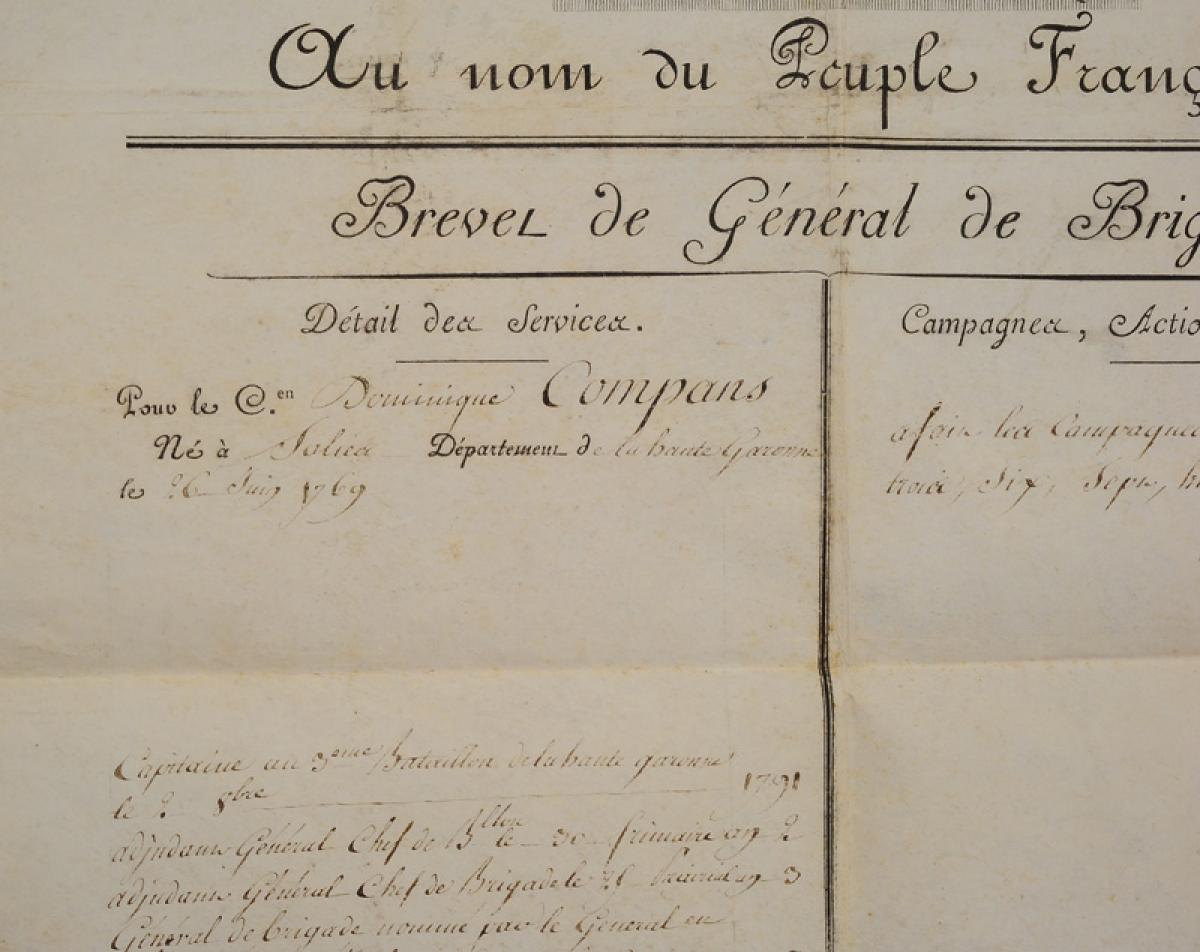 Au nom du Peuple Franç
Brevet de Général de Brig
Détail des Services.
Campagnes, Actio
Pour le C.en Dominique Compans
Né à Salies Département de la haute Garonne
le 26 Juin 1769
a fait les Campagnes
trois, Six, Sept,
Capitaine au 3eme Bataillon de la haute garonne
le 2 8bre 1791
adjudant Général Chef de Bllon le 30 frimaire an 2
adjudant Général Chef de Brigade le 25 Prairial an 3
Général de brigade nommé par le Général en